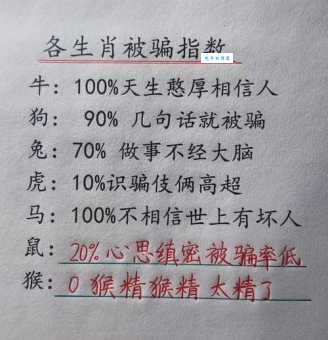 各生肖被骗指数
牛：100%天生憨厚相信人
狗： 90% 几句话就被骗
兔：70% 做事不经大脑
虎：10%识骗伎俩高超
马：100%不相信世上有坏人
鼠：20%心思缜密被骗率低
猴：0 猴精猴精 太精了